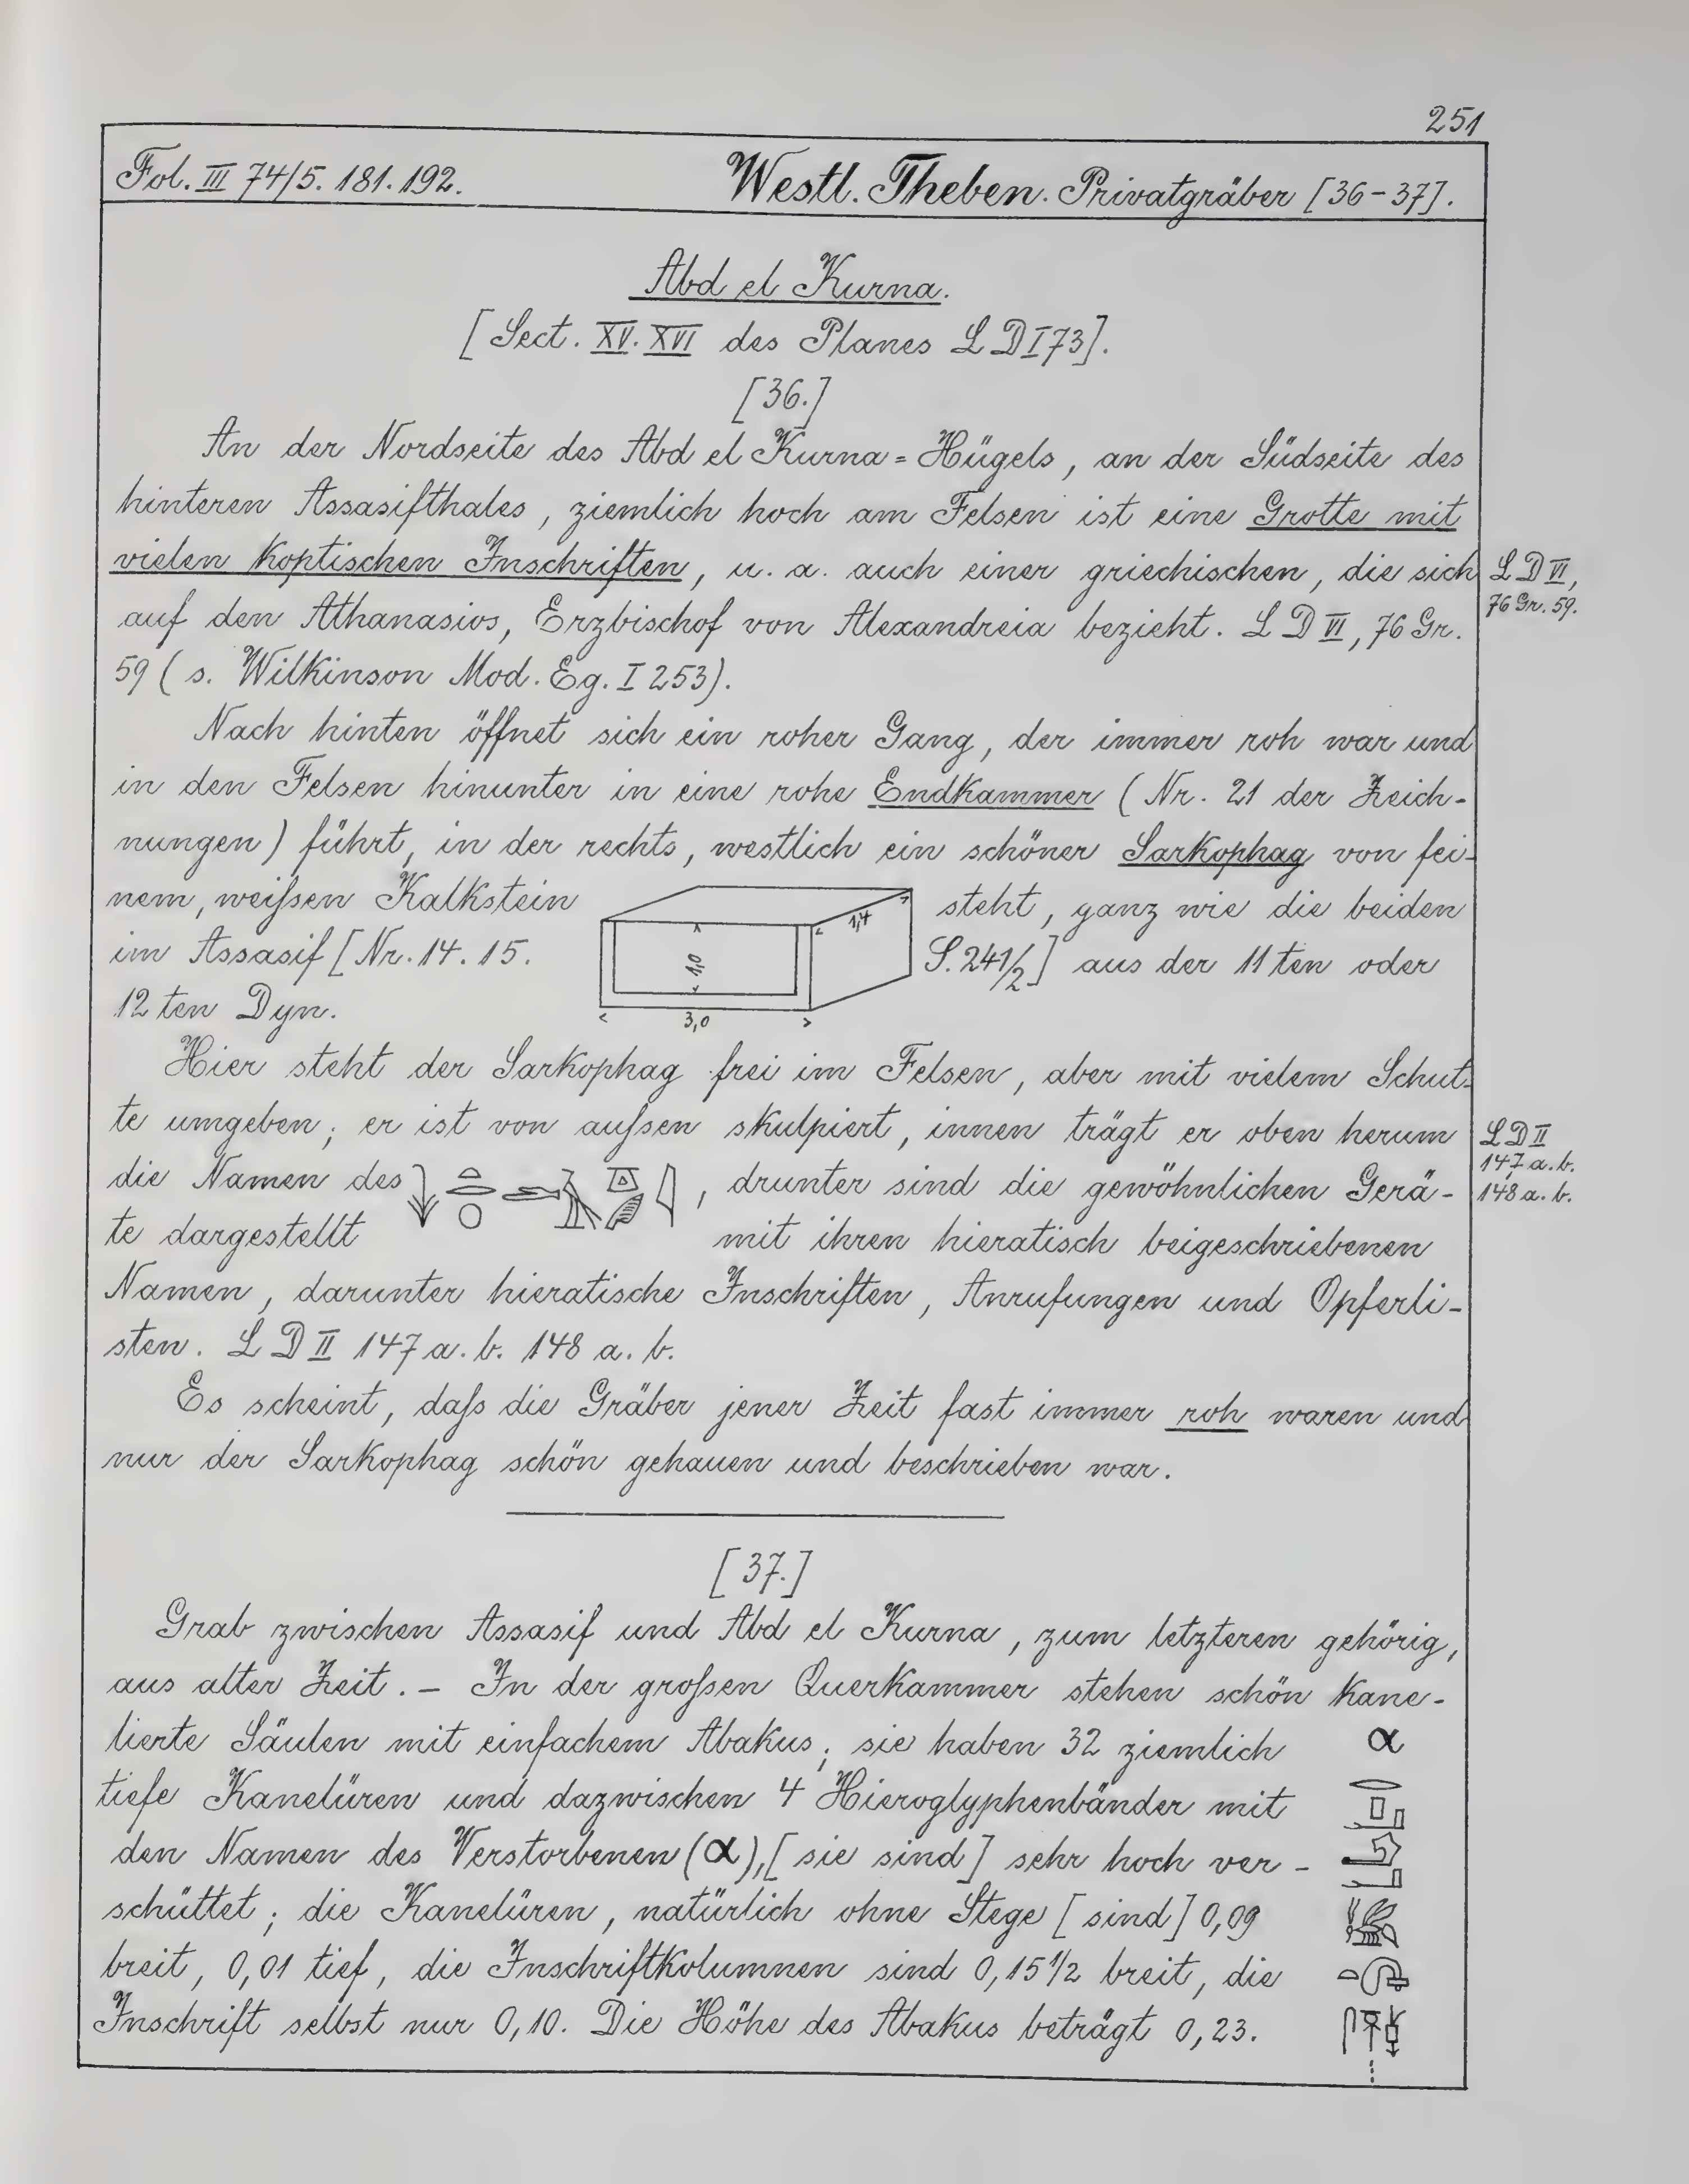 251
Fol. III 74/5. 181. 192. Westl. Theben. Privatgräber [36-37].
Abd el Kurna.
[Sect. XV. XVI des Planes L D I 73].
[36.]
An der Nordseite des Abd el Kurna=Hügels, an der Südseite des
hinteren Assasifthales, ziemlich hoch am Felsen ist eine Grotte mit
vielen koptischen Inschriften, u. a. auch einer griechischen, die sich
L D VI,
76 Gr. 59.
auf den Athanasios, Erzbischof von Alexandreia bezieht. L D VI, 76 Gr.
59 (s. Wilkinson Mod. Eg. I 253).
Nach hinten öffnet sich ein roher Gang, der immer roh war und
in den Felsen hinunter in eine rohe Endkammer (Nr. 21 der Zeich-
nungen) führt, in der rechts, westlich ein schöner Sarkophag von fei-
nem, weißen Kalkstein steht, ganz wie die beiden
1,4
im Assasif [Nr. 14. 15. S. 241/2] aus der 11ten oder
1,0
12ten Dyn.
3,0
Hier steht der Sarkophag frei im Felsen, aber mit vielem Schut-
te umgeben; er ist von außen skulpiert, innen trägt er oben herum
L D II
147 a. b.
148 a. b.
die Namen des , drunter sind die gewöhnlichen Gerä-
te dargestellt mit ihren hieratisch beigeschriebenen
Namen, darunter hieratische Inschriften, Anrufungen und Opferli-
sten. L D II 147 a. b. 148 a. b.
Es scheint, daß die Gräber jener Zeit fast immer roh waren und
nur der Sarkophag schön gehauen und beschrieben war.
[37.]
Grab zwischen Assasif und Abd el Kurna, zum letzteren gehörig,
aus alter Zeit. - In der großen Querkammer stehen schön kane-
lierte Säulen mit einfachem Abakus; sie haben 32 ziemlich
α
tiefe Kanelüren und dazwischen 4 Hieroglyphenbänder mit
den Namen des Verstorbenen (α), [sie sind] sehr hoch ver-
schüttet; die Kanelüren, natürlich ohne Stege [sind] 0,09
breit, 0,01 tief, die Inschriftkolumnen sind 0,15 1/2 breit, die
Inschrift selbst nur 0,10. Die Höhe des Abakus beträgt 0,23.